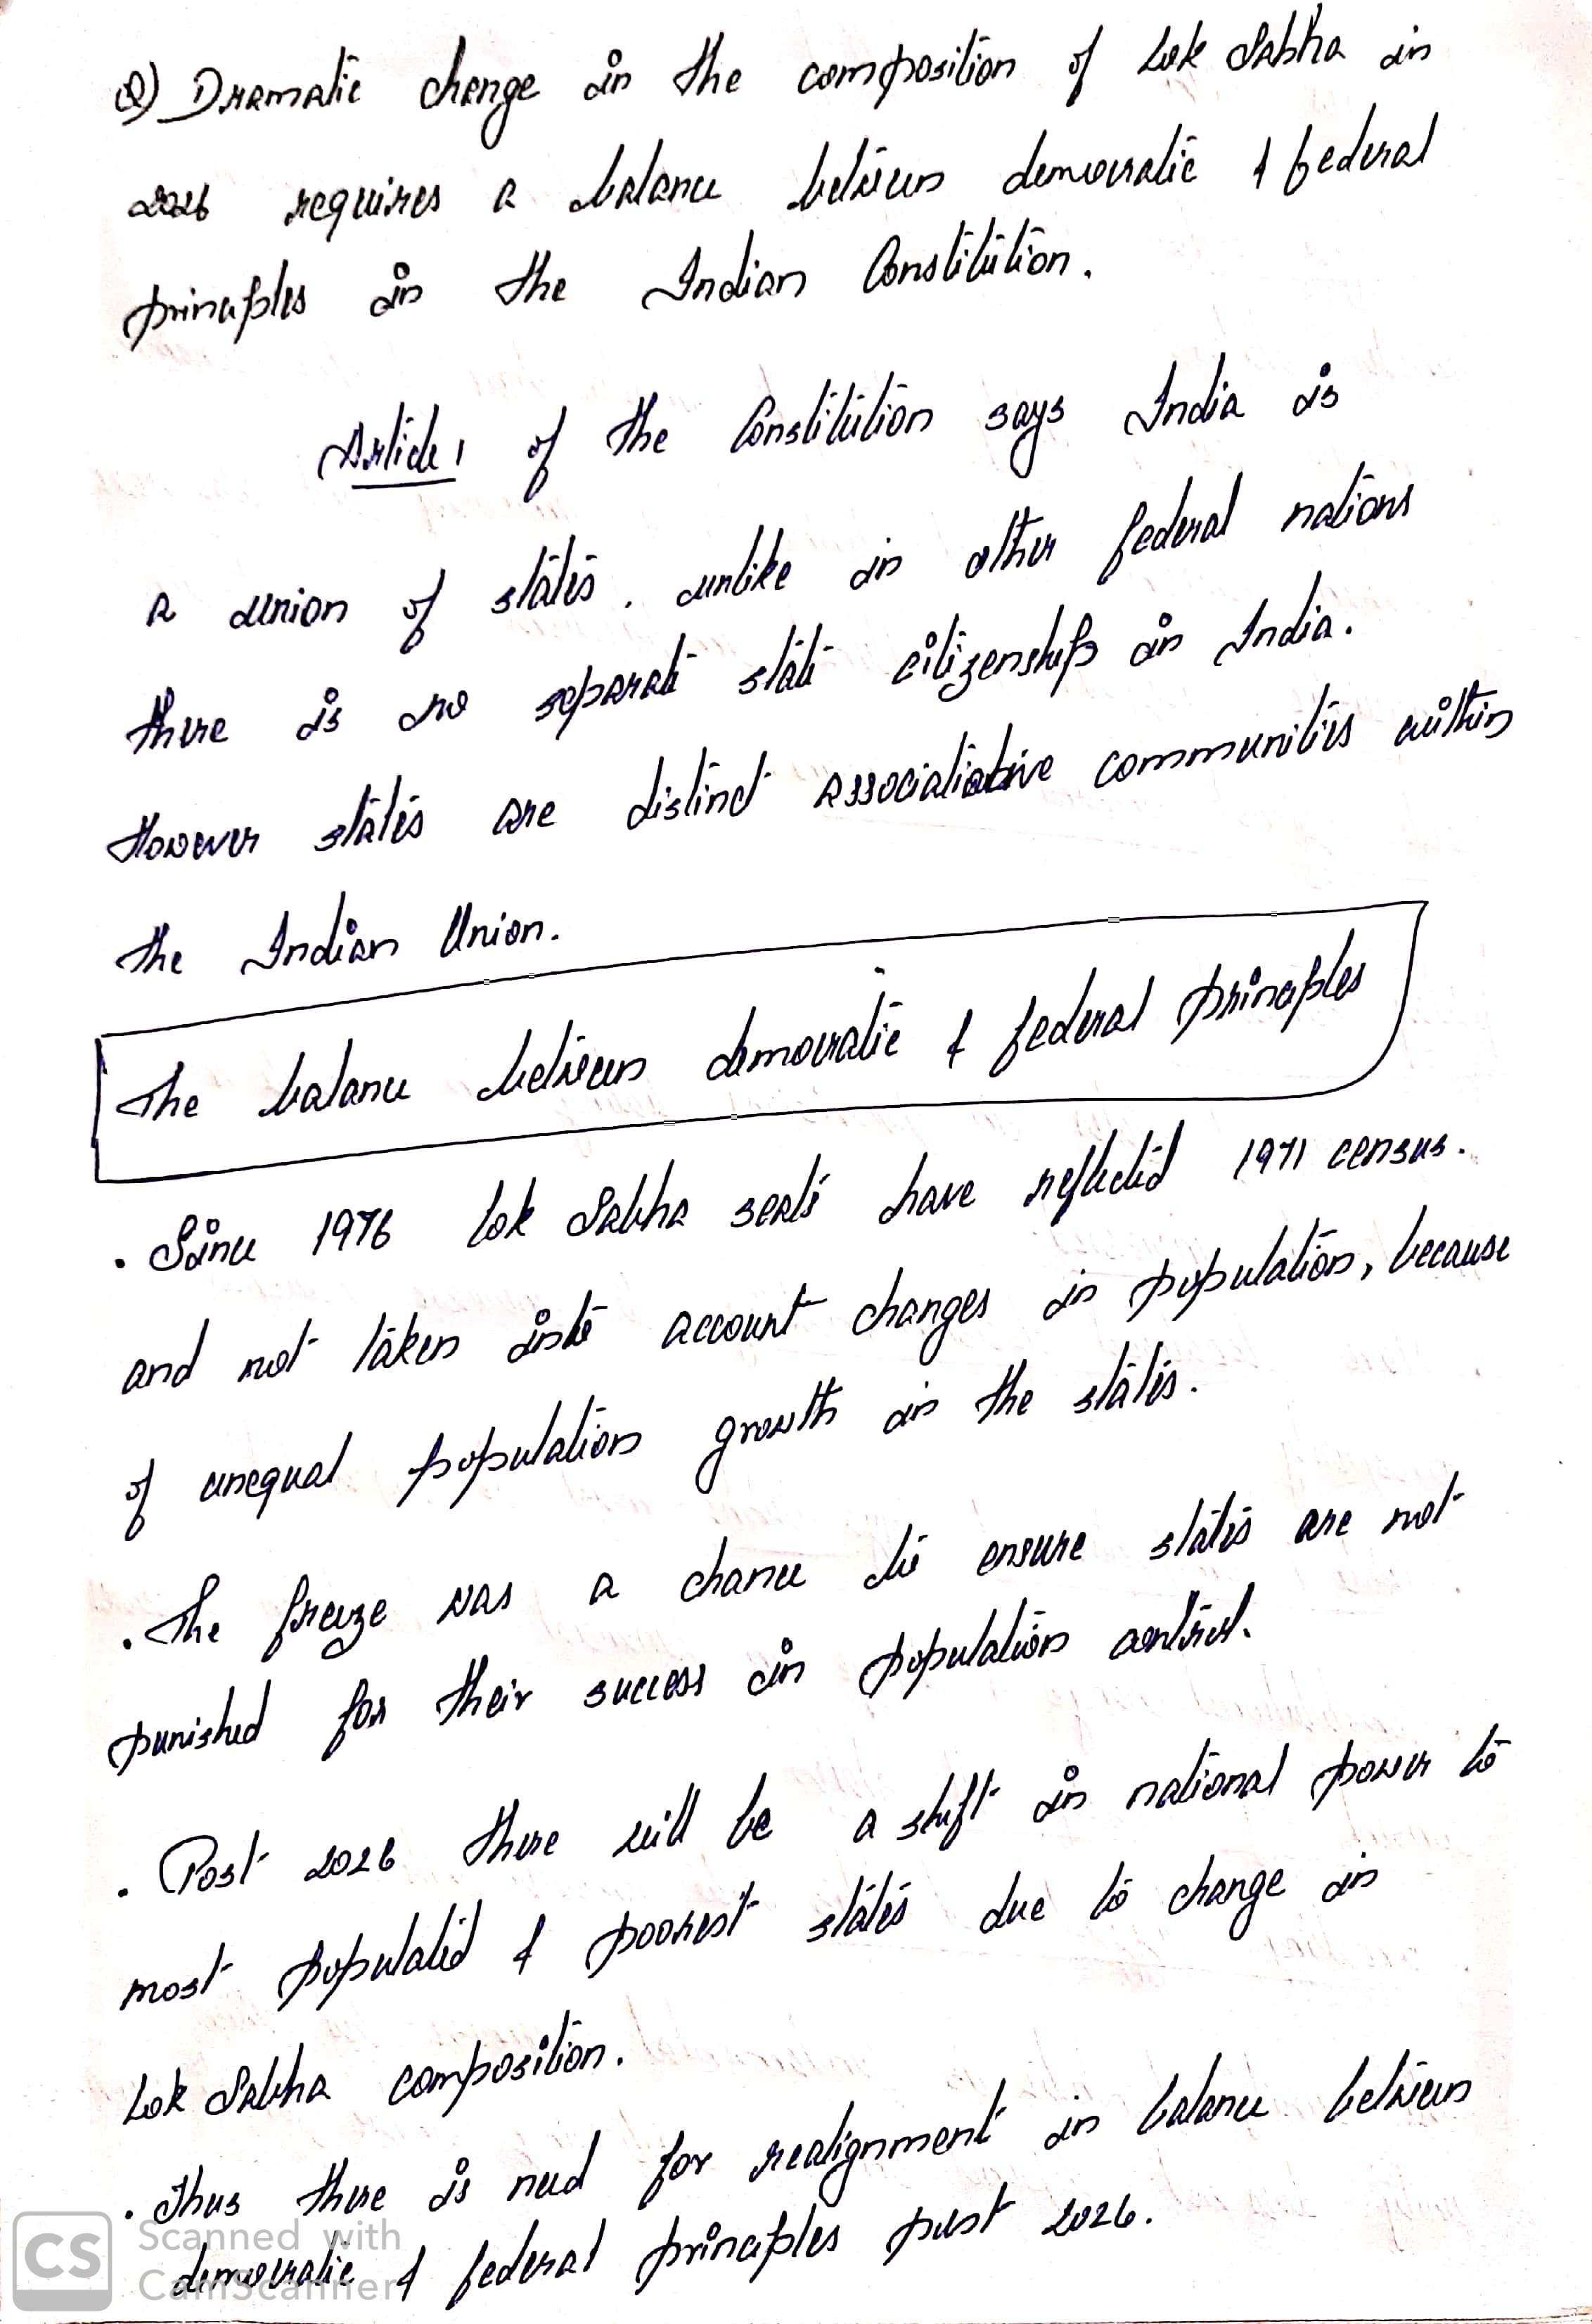 Q) Dramatic change in the composition of Lok Sabha in
2026 requires a balance between democratic & federal
principles in the Indian Constitution.
Article 1 of the Constitution says India is
a union of states. unlike in other federal nations
there is no separate state citizenship in India.
However states are distinct associative communities within
the Indian Union.
The balance between democratic & federal principles
. Since 1976 Lok Sabha seats have reflected 1971 census.
and not taken into account changes in population, because
of unequal population growth in the states.
. The freeze was a chance to ensure states are not
punished for their success in population control.
. Post 2026 there will be a shift in national power to
most populated & poorest states due to change in
Lok Sabha composition.
. Thus there is need for realignment in balance between
democratic & federal principles post 2026.
CS Scanned with
CamScanner